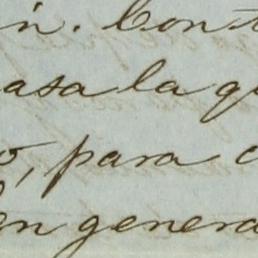 in. Con
asa la q
o, para c
en genera